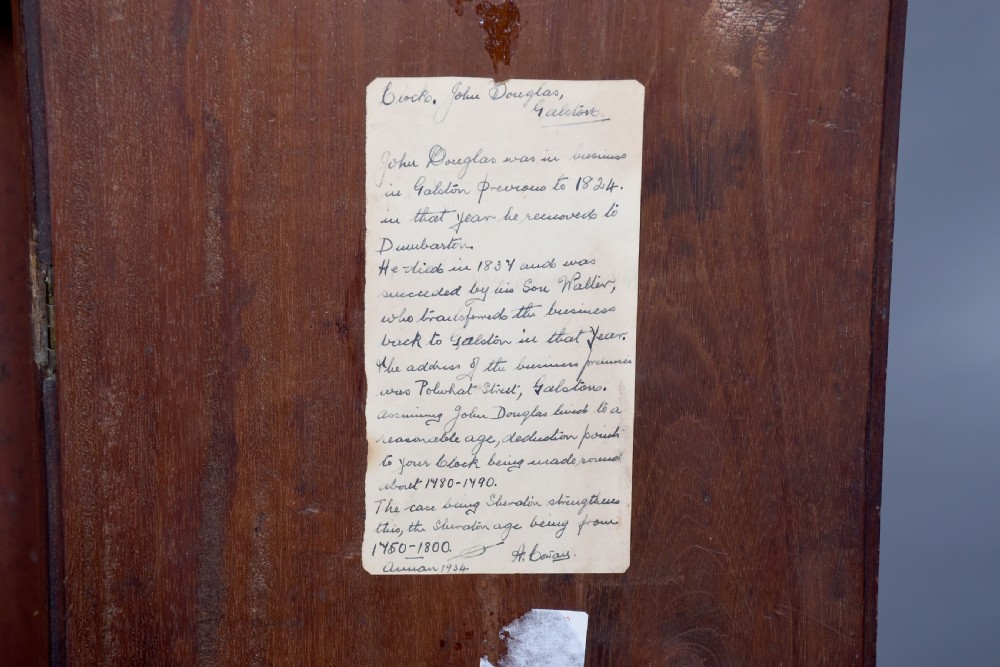 Clock. John Douglas,
Galston.
John Douglas was in business
in Galston previous to 1824.
in that year he removed to
Dumbarton.
He died in 1837 and was
succeeded by his Son Walter,
who transferred the business
back to Galston in that year.
The address of the business premises
was Polwhat Street, Galston.
Assuming John Douglas lived to a
reasonable age, deduction points
to your clock being made round
about 1780-1790.
The case being Sheraton strengthens
this, the Sheraton age being from
1750-1800.
A. Cowans.
Annan 1934